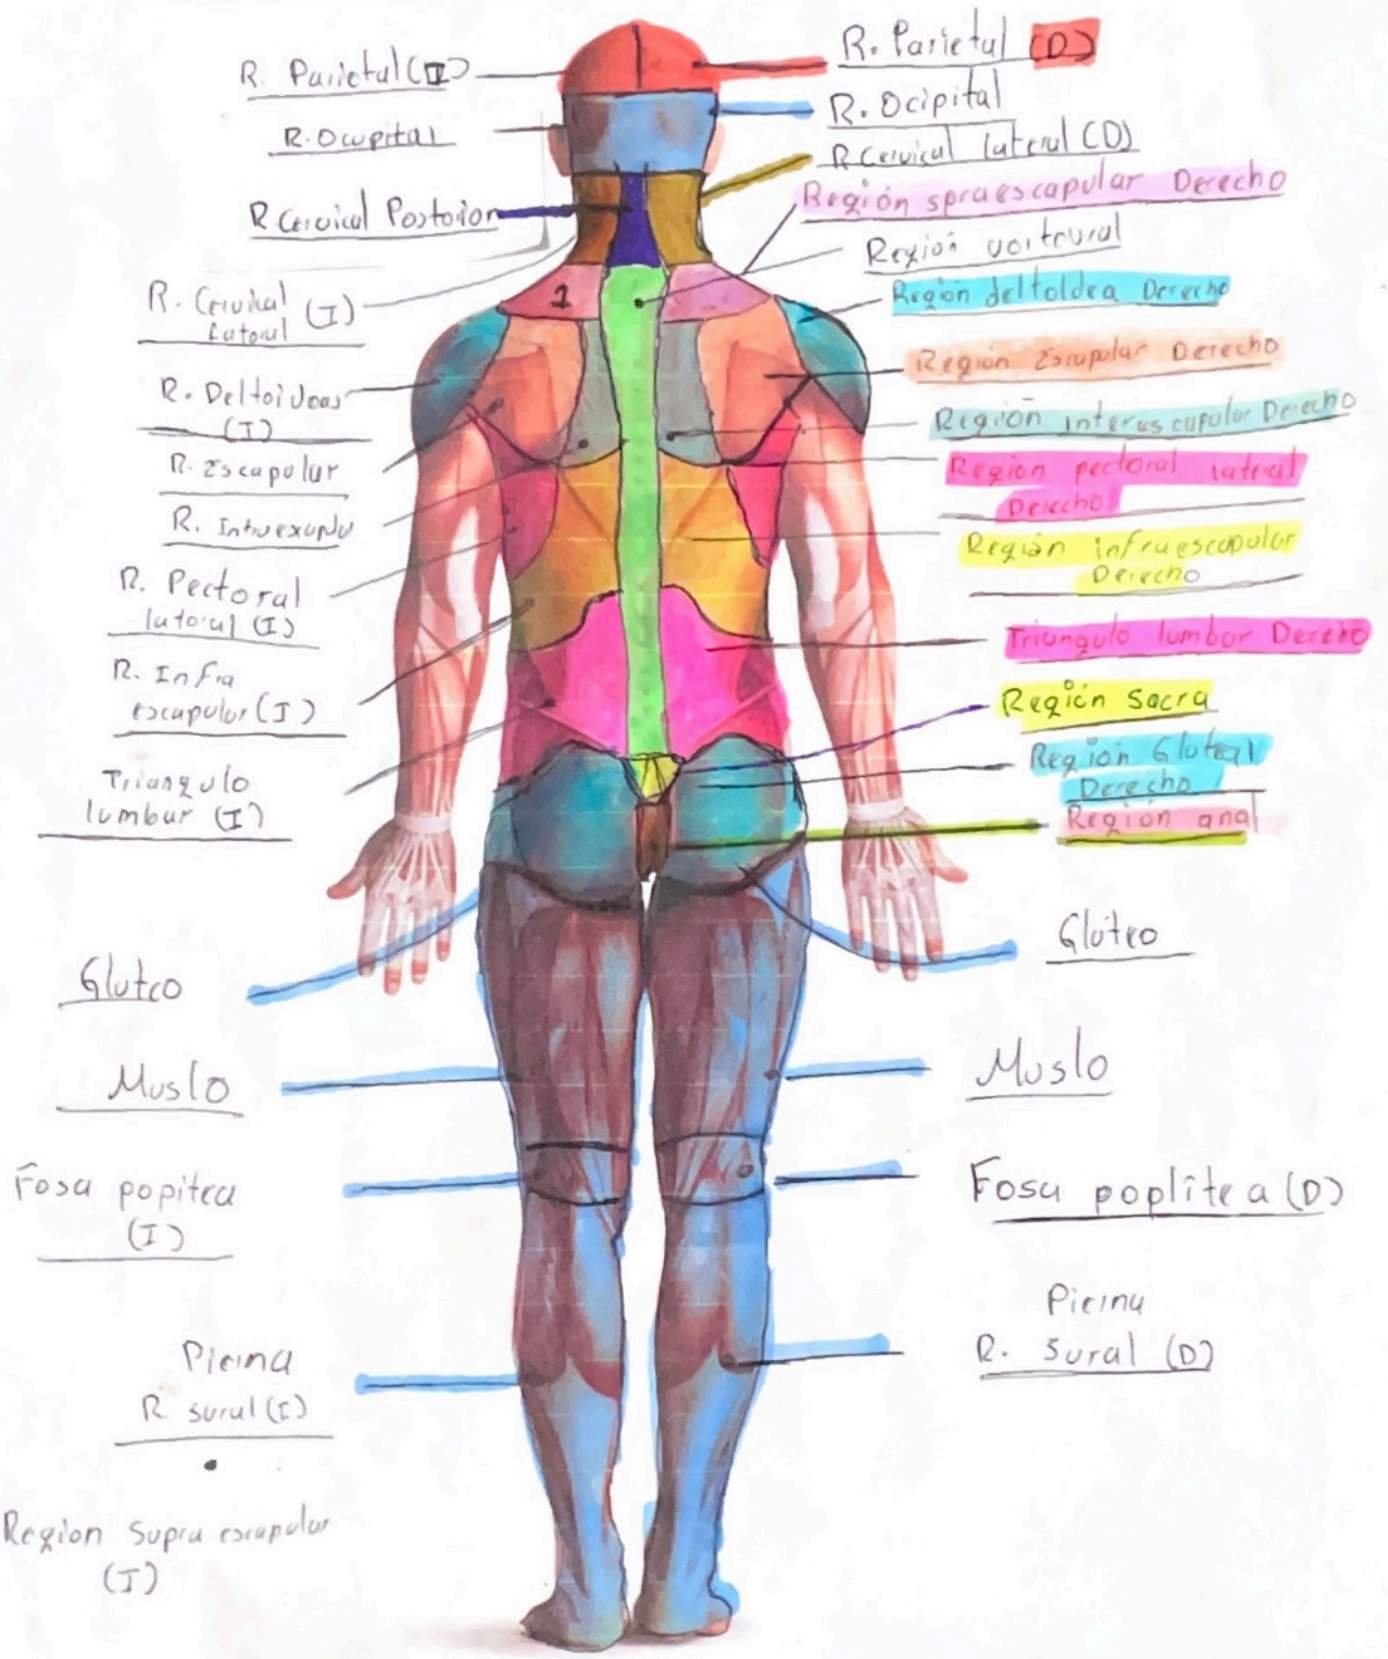 R. Parietal (I)
R. Ocupital
R. Cervical Posterior
R. Cervical (I)
Lateral
R. Deltoideas
(I)
R. Escapular
R. Pectoral
lateral (I)
R. Infra
escapular (I)
Triangulo
lumbar (I)
Gluteo
Muslo
Fosa popitea
(I)
Pierna
R sural (I)
Region Supra escapular
(I)
1
R. Parietal (D)
R. Ocipital
R Cervical lateral (D)
Región spraescapular Derecho
Región
Región deltoldea Derecho
Región Escapular Derecho
Región interescapular Derecho
Region pectoral lateral
Derecho
Región infraescapular
Derecho
Triungulo lumbar Derecho
Región Sacra
Región Gluteal
Derecho
Región anal
Glúteo
Muslo
Fosa poplítea (D)
Pierna
R. Sural (D)